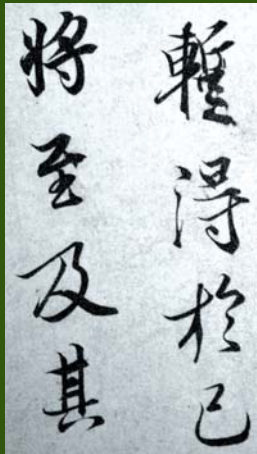 暫得於己
將至及其